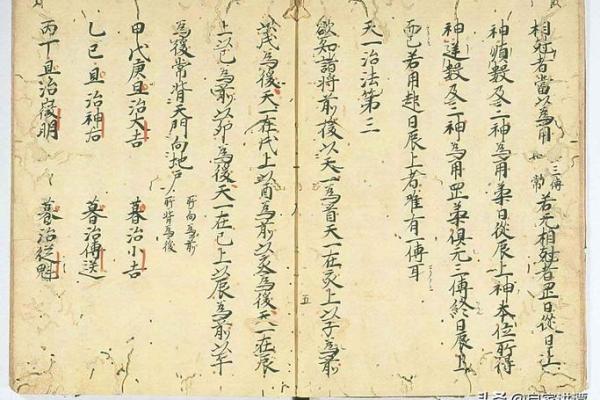 相尅者當以為用 三傳如常 若无相尅者罡日從日上
神煩數及二神為用柔日從辰上神本位所得
神遥數及二神為用罡柔俱无三傳終日辰上
而已若用起日辰上者唯有一傳耳
天一治法第三
欲知諸將前後以天一為首天一在亥上以子為前
以戌為後天一在戌上以酉為前以亥為後天一在辰
上以巳為前以卯為後天一在巳上以辰為前以午
為後常背天門向地戸 所向為前 所背為後
甲戊庚旦治大吉 暮治小吉
乙己旦治神后 暮治傳送
丙丁旦治徴明 暮治従魁